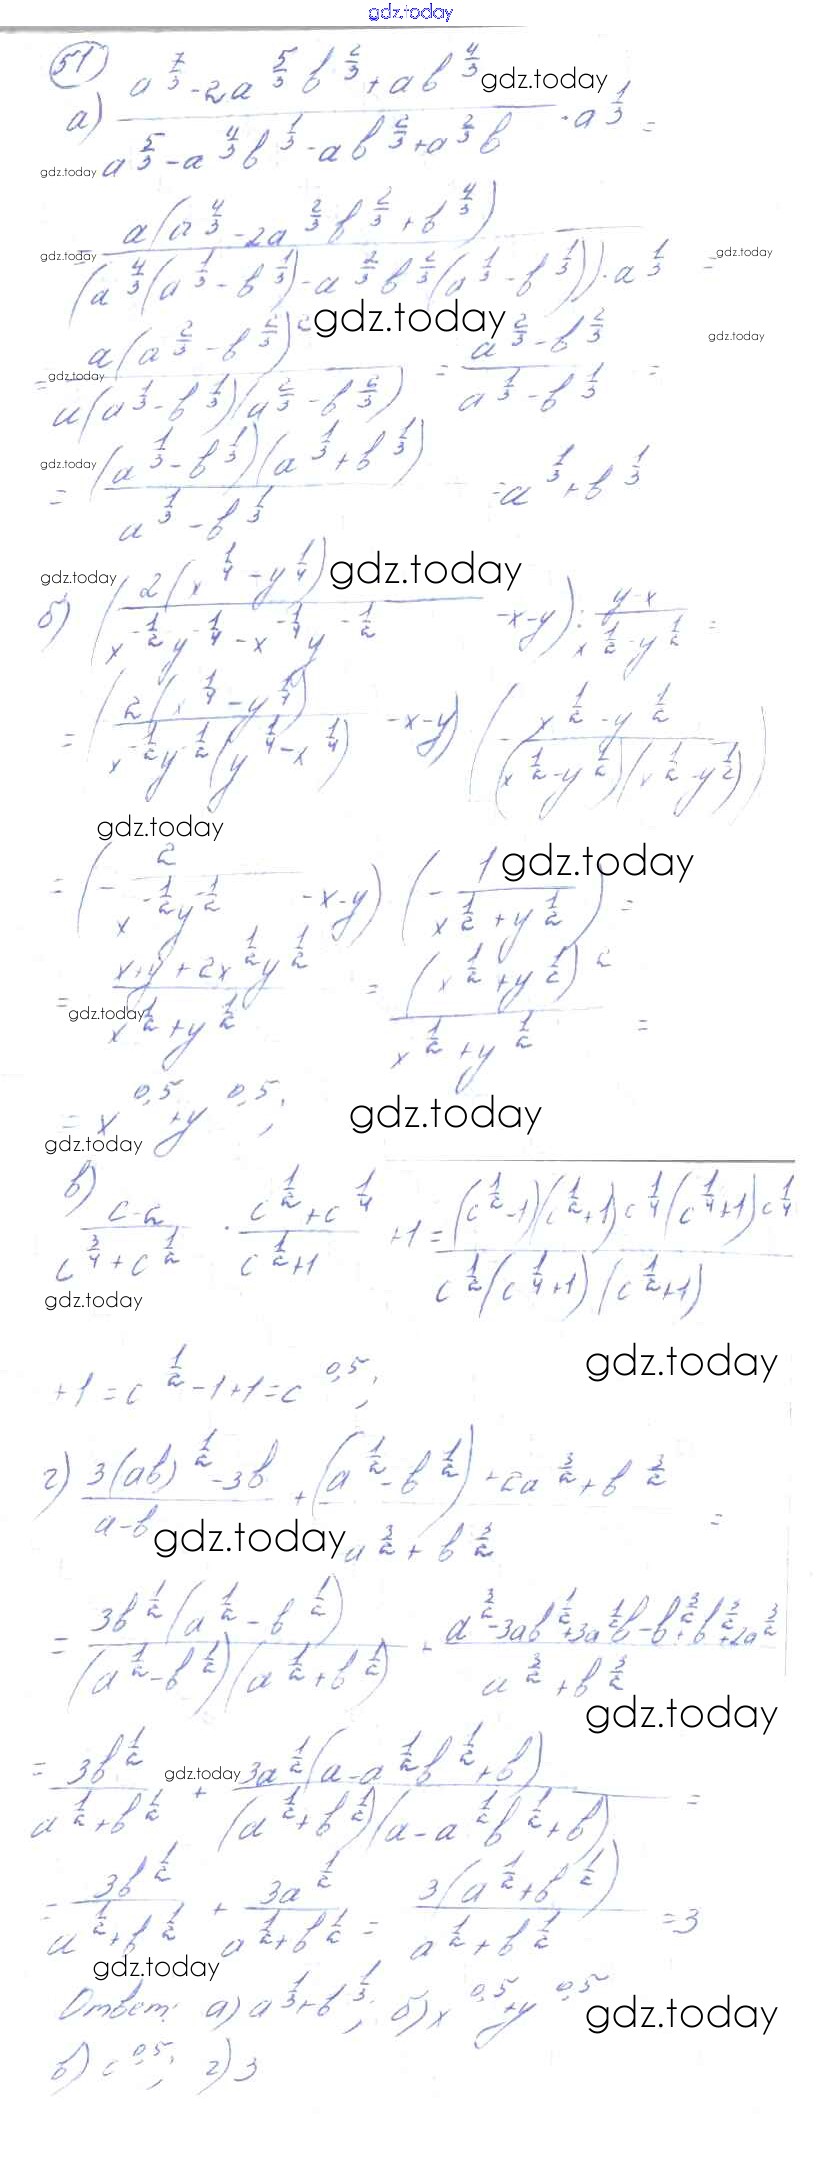 gdz.today
51
а) (a^(7/3) - 2a^(5/3) b^(2/3) + ab^(4/3)) / (a^(5/3) - a^(4/3) b^(1/3) - ab^(2/3) + a^(2/3) b) · a^(1/3) =
gdz.today
gdz.today
= a(a^(4/3) - 2a^(2/3) b^(2/3) + b^(4/3)) / (a^(4/3)(a^(1/3) - b^(1/3)) - a^(2/3) b^(2/3)(a^(1/3) - b^(1/3))) · a^(1/3) =
gdz.today
gdz.today
gdz.today
= a(a^(2/3) - b^(2/3))^2 / (a(a^(1/3) - b^(1/3))(a^(2/3) - b^(2/3))) = (a^(2/3) - b^(2/3)) / (a^(1/3) - b^(1/3)) =
gdz.today
gdz.today
= (a^(1/3) - b^(1/3))(a^(1/3) + b^(1/3)) / (a^(1/3) - b^(1/3)) = a^(1/3) + b^(1/3)
gdz.today
gdz.today
gdz.today
б) (2(x^(1/4) - y^(1/4)) / (x^(-1/2) y^(-1/4) - x^(-1/4) y^(-1/2)) - x - y) : (y - x) / (x^(1/2) - y^(1/2)) =
= (2(x^(1/4) - y^(1/4)) / (x^(-1/2) y^(-1/2) (y^(1/4) - x^(1/4))) - x - y) (- (x^(1/2) - y^(1/2)) / ((x^(1/2) - y^(1/2))(x^(1/2) - y^(1/2))))
gdz.today
= (- 2 / (x^(-1/2) y^(-1/2)) - x - y) (- 1 / (x^(1/2) + y^(1/2))) =
gdz.today
= (x + y + 2x^(1/2) y^(1/2)) / (x^(1/2) + y^(1/2)) = (x^(1/2) + y^(1/2))^2 / (x^(1/2) + y^(1/2)) =
gdz.today
= x^0,5 + y^0,5;
gdz.today
gdz.today
в) (c - 2) / (c^(3/4) + c^(1/2)) · (c^(1/2) + c^(1/4)) / (c^(1/2) + 1) + 1 = (c^(1/2) - 1)(c^(1/2) + 1) c^(1/4) (c^(1/4) + 1) c^(1/4) / (c^(1/2)(c^(1/4) + 1)(c^(1/2) + 1))
gdz.today
gdz.today
+ 1 = c^(1/2) - 1 + 1 = c^0,5;
г) (3(ab)^(1/2) - 3b) / (a - b) + ((a^(1/2) - b^(1/2)) + 2a^(3/2) + b^(3/2)) / (a^(3/2) + b^(3/2)) =
gdz.today
= 3b^(1/2)(a^(1/2) - b^(1/2)) / ((a^(1/2) - b^(1/2))(a^(1/2) + b^(1/2))) + (a^(3/2) - 3ab^(1/2) + 3a^(1/2) b - b^(3/2) + b^(3/2) + 2a^(3/2)) / (a^(3/2) + b^(3/2))
gdz.today
= 3b^(1/2) / (a^(1/2) + b^(1/2)) + 3a^(1/2)(a - a^(1/2) b^(1/2) + b) / ((a^(1/2) + b^(1/2))(a - a^(1/2) b^(1/2) + b)) =
gdz.today
= 3b^(1/2) / (a^(1/2) + b^(1/2)) + 3a^(1/2) / (a^(1/2) + b^(1/2)) = 3(a^(1/2) + b^(1/2)) / (a^(1/2) + b^(1/2)) = 3
gdz.today
Ответ: а) a^(1/3) + b^(1/3); б) x^0,5 + y^0,5
gdz.today
в) c^0,5; г) 3